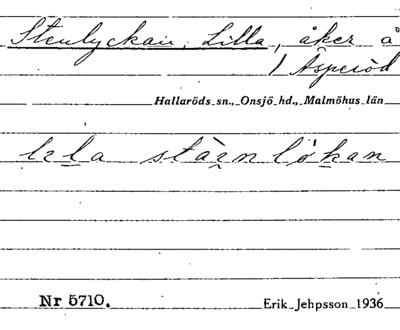 Stenlyckan, Lilla, åker å
1 Äsperöd
Hallaröds sn., Onsjö hd., Malmöhus län
stàɛnlökan
Nr 5710.
Erik Jehpsson 1936